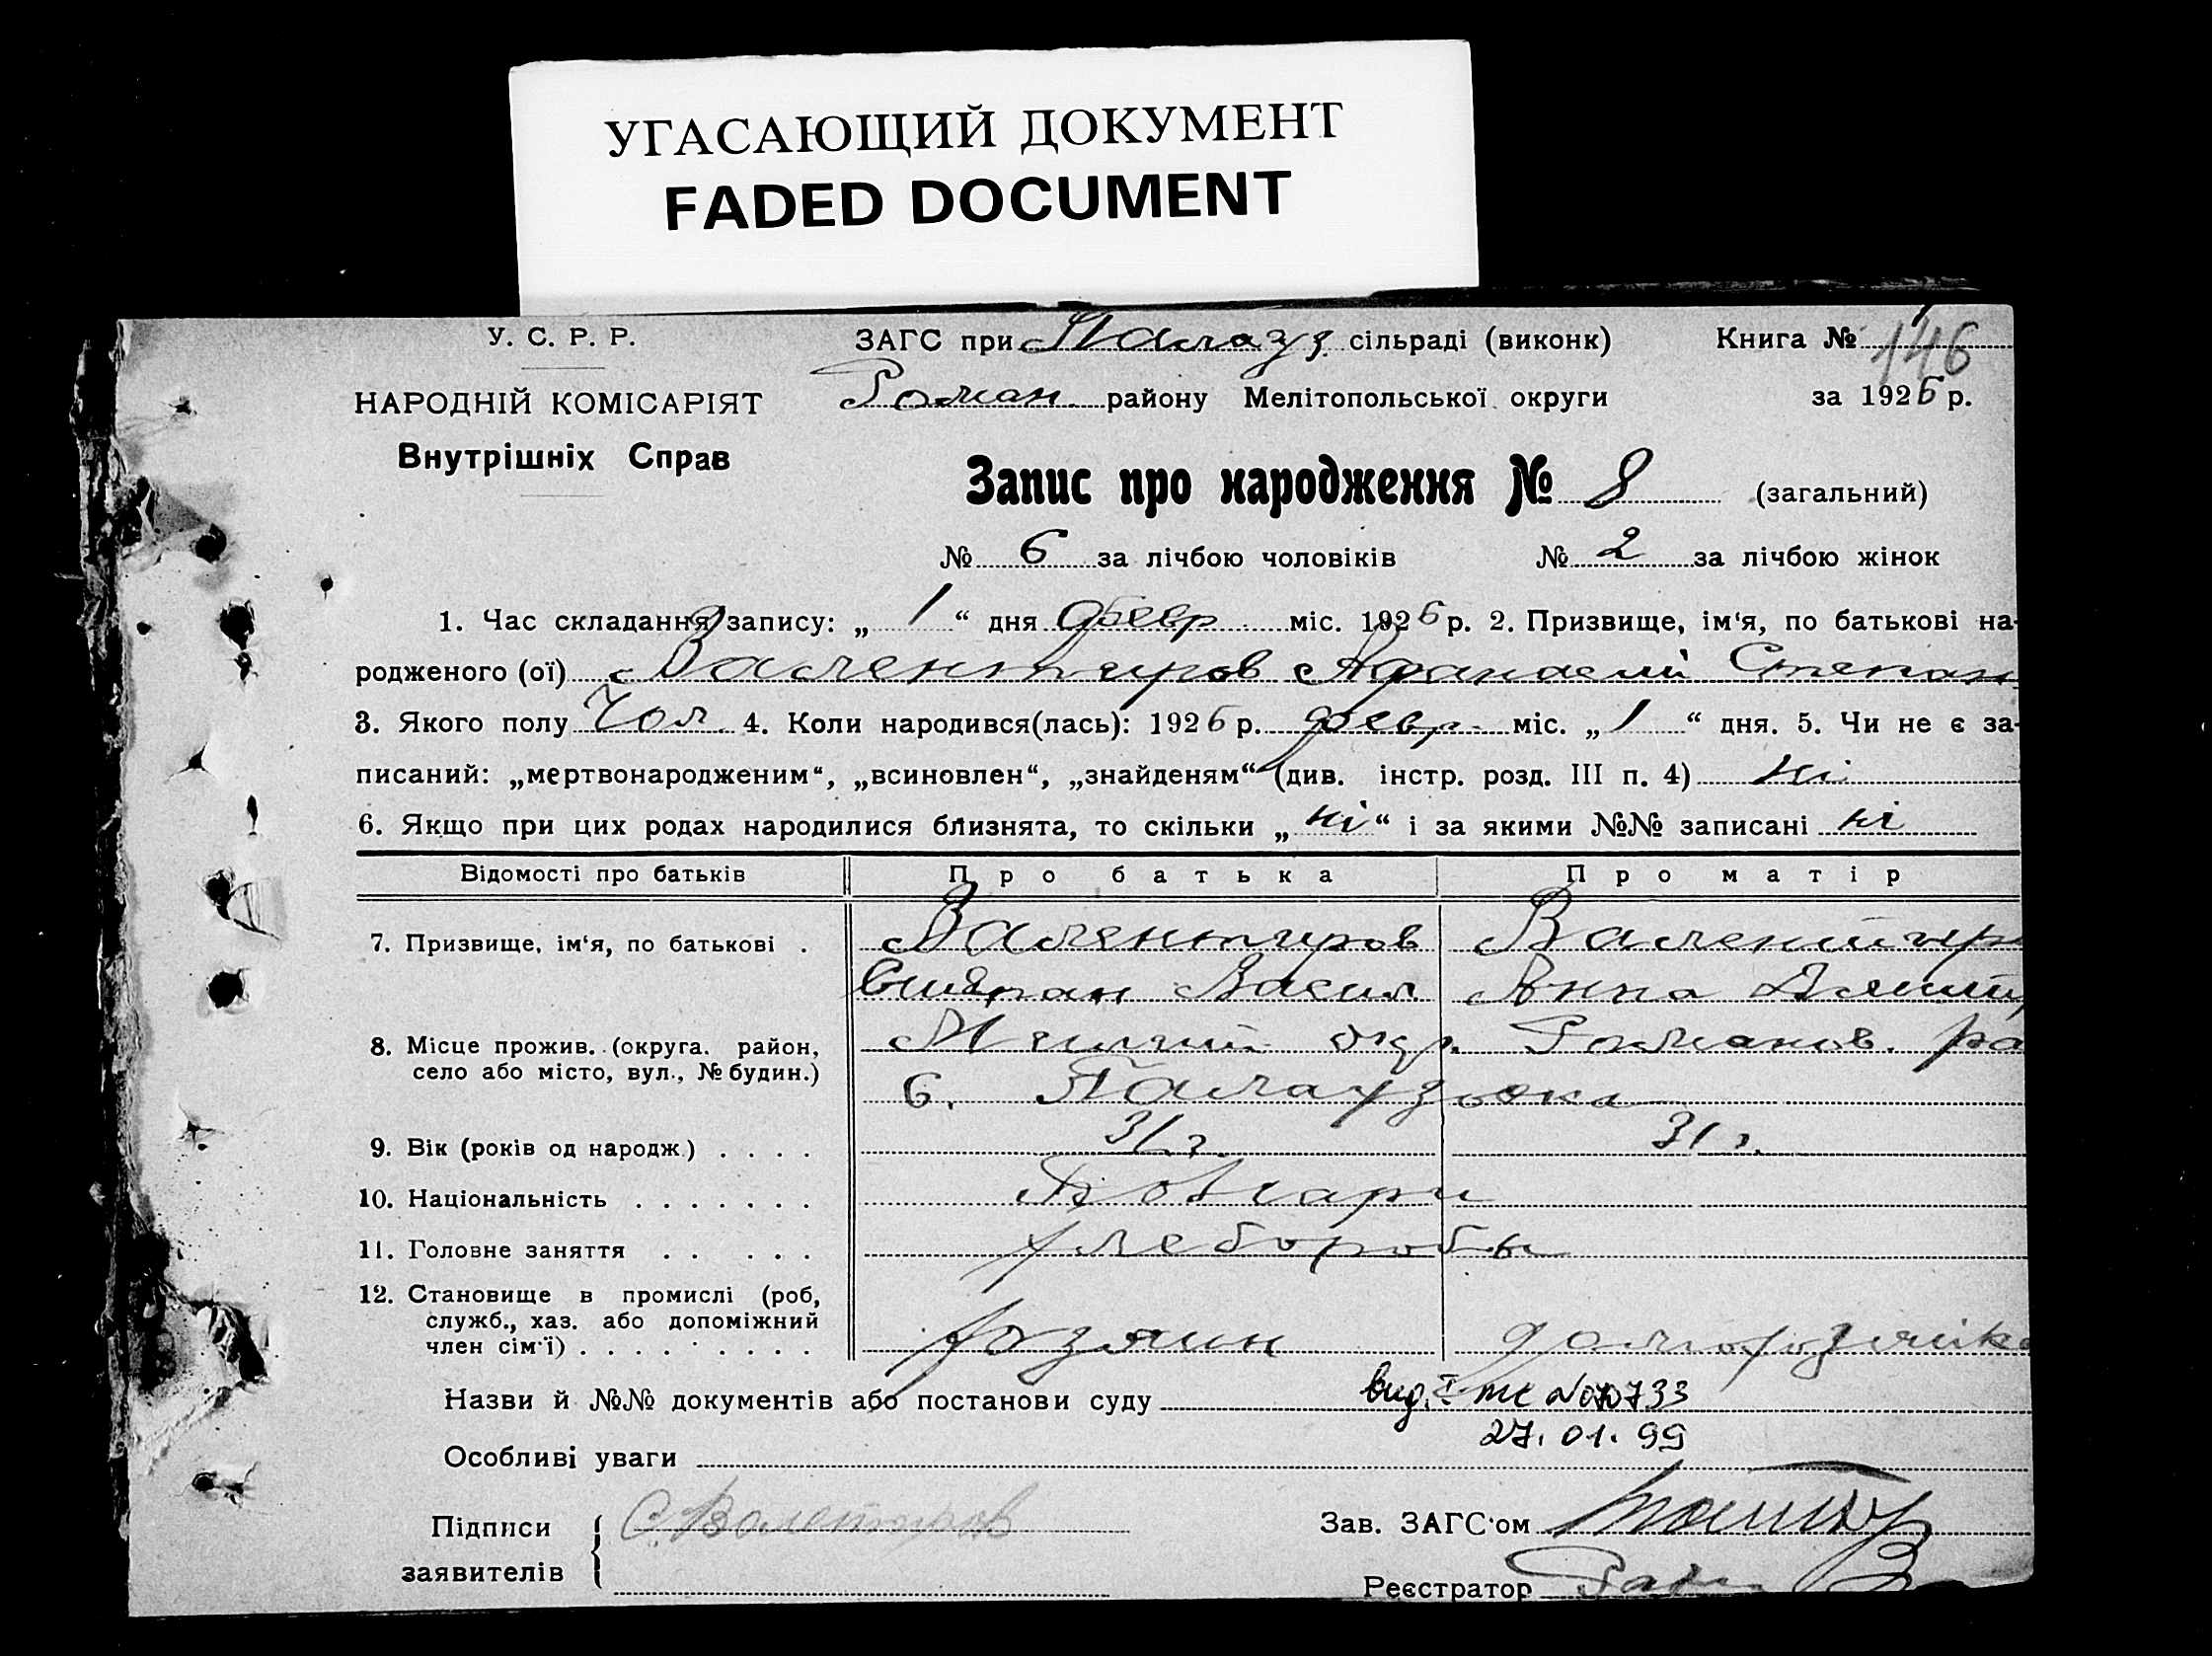 УГАСАЮЩИЙ ДОКУМЕНТ
FADED DOCUMENT
У. С. Р. Р.
ЗАГС при Палауз. сільраді (виконк) Книга № 146
НАРОДНІЙ КОМІСАРІЯТ
Роман. району Мелітопольської округи за 1926 р.
Внутрішніх Справ
Запис про народження № 8 (загальний)
№ 6 за лічбою чоловіків № 2 за лічбою жінок
1. Час складання запису: „ 1 “ дня февр міс. 1926 р. 2. Призвище, ім‘я, по батькові на-
родженого (ої) Валентиров Афанасий Степан
3. Якого полу Чол. 4. Коли народився(лась): 1926 р. февр. міс. „ 1 “ дня. 5. Чи не є за-
писаний: „мертвонародженим“, „всиновлен“, „знайденям“ (див. інстр. розд. III п. 4) ні
6. Якщо при цих родах народилися близнята, то скільки „ ні “ і за якими №№ записані ні
Відомості про батьків Про батька Про матір
7. Призвище, ім‘я, по батькові . Валентиров Валентир
Степан Васил Анна Дмитр
8. Місце прожив. (округа. район, Мелит. окр. Романов. ра
село або місто, вул., № будин.) с. Палаузовка
9. Вік (років од народж.) . . . . 31 г. 31 г.
10. Національність . . . . . . . Болгари
11. Головне заняття . . . . . . хлеборобы
12. Становище в промислі (роб,
служб., хаз. або допоміжний
член сім‘ї) . . . . . . . . . хозяин домохозяйка
Назви й №№ документів або постанови суду вид. I
27.01.99
Особливі уваги
Підписи С. Валентиров Зав. ЗАГС‘ом
заявителів
Реєстратор